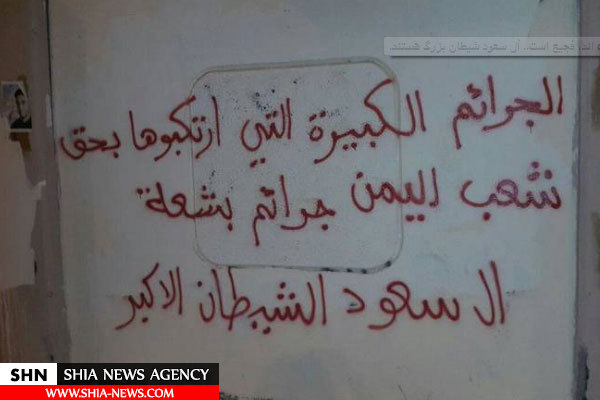 آل سعود شیطان بزرگ هستند.
الجرائم الكبيرة التي ارتكبوها بحق
شعب اليمن جرائم بشعة
ال سعود الشيطان الاكبر
SHN SHIA NEWS AGENCY
WWW.SHIA-NEWS.COM